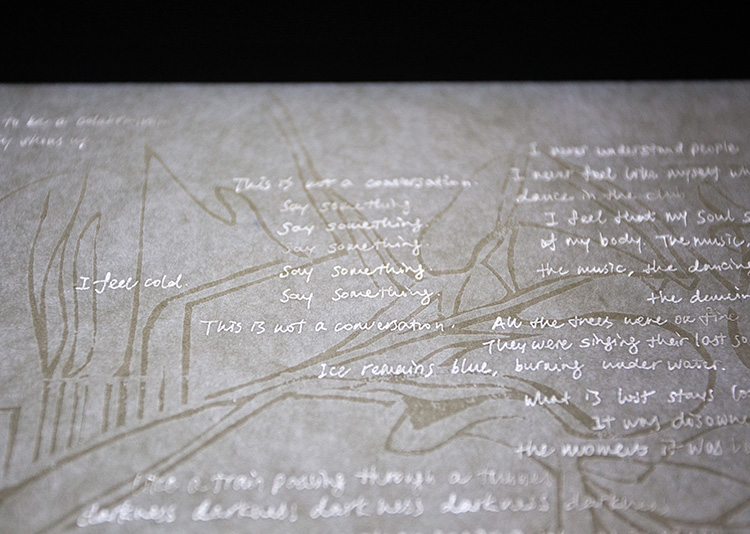 to be a celebration
This is not a conversation.
Say something
Say something.
Say something.
Say something.
Say something.
This is not a conversation.
I feel cold.
I never understand people
I never feel like myself
dance in the club
I feel that my soul
of my body. The music,
the music, the dancing
the dancing
All the trees were on fire
They were singing their last so
Ice remains blue, burning under water.
What is lost stays
It was disowne
the moment it was
like a train passing through a tunnel
darkness darkness darkness darkness darkness